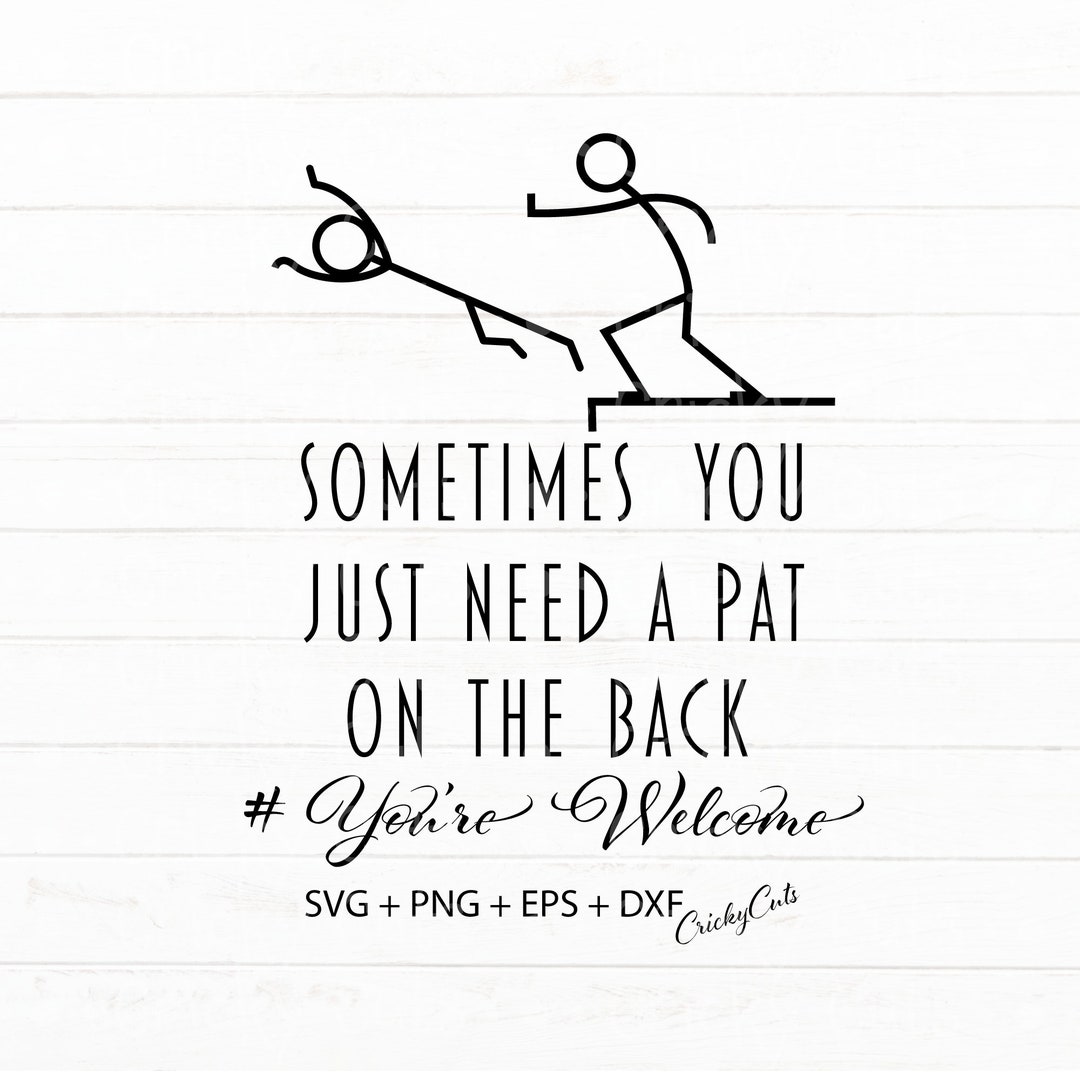 SOMETIMES YOU
JUST NEED A PAT
ON THE BACK
# You're Welcome
SVG + PNG + EPS + DXF
CrickyCuts